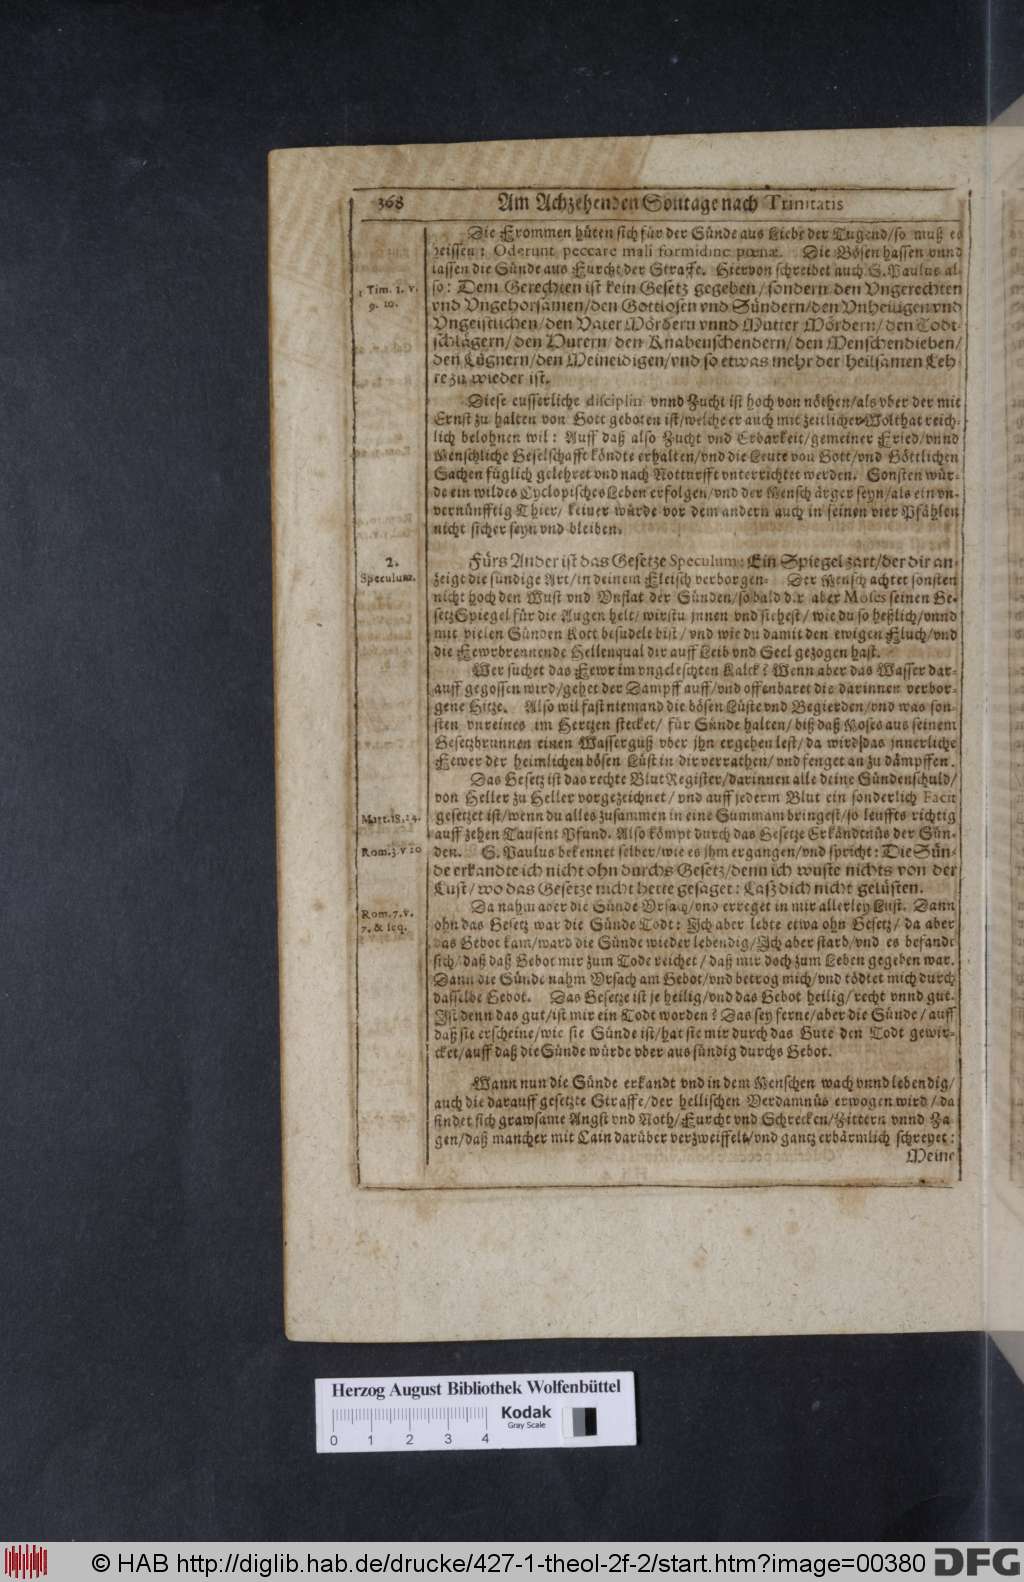 368 Am Achzehenden Sontage nach Trinitatis
Die Frommen hüten sich für der Sünde aus Liebe der Tugend/so muß es
heissen: Oderunt peccare mali formidine pœnæ. Die Bösen hassen vnnd
lassen die Sünde aus Furcht der Straffe. Hiervon schreibet auch S. Paulus al-
1 Tim. 1. v.
9. 10.
so: Dem Gerechten ist kein Gesetz gegeben/ sondern den Vngerechten
vnd Vngehorsamen/den Gottlosen vnd Sündern/den Vnheiligen vnd
Vngeistlichen/den Vater Mördern vnnd Mutter Mördern/ den Todt-
schlägern/ den Hurern/ den Knabenschendern/ den Menschendieben/
den Lügnern/den Meineidigen/vnd so etwas mehr der heilsamen Leh-
re zu wieder ist.
Diese eusserliche disciplin vnnd Zucht ist hoch von nöthen/als vber der mit
Ernst zu halten von Gott geboten ist/welche er auch mit zeitlicher Wolthat reich-
lich belohnen wil: Auff daß also Zucht vnd Erbarkeit/gemeiner Fried/vnnd
Menschliche Geselschafft köndte erhalten/vnd die Leute von Gott/vnd Göttlichen
Sachen füglich gelehret vnd nach Notturfft vnterrichtet werden. Sonsten wür-
de ein wildes Cyclopisches Leben erfolgen/vnd der Mensch ärger seyn/als ein vn-
vernünfftig Thier/ keiner würde vor dem andern auch in seinen vier Pfählen
nicht sicher seyn vnd bleiben.
2.
Speculum.
Fürs Ander ist das Gesetze Speculum: Ein Spiegel zart/der dir an-
zeigt die sündige Art/in deinem Fleisch verborgen. Der Mensch achtet sonsten
nicht hoch den Wust vnd Vnflat der Sünden/so bald dir aber Moses seinen Ge-
setz Spiegel für die Augen helt/ wirstu jnnen vnd siehest/ wie du so heßlich/vnnd
mit vielen Sünden Kott besudele bist/ vnd wie du damit den ewigen Fluch/vnd
die Fewrbrennende Hellenqual dir auff Leib vnd Seel gezogen hast.
Wer suchet das Fewr im vngeleschten Kalck? Wenn aber das Wasser dar-
auff gegossen wird/gehet der Dampff auff/vnd offenbaret die darinnen verbor-
gene Hitze. Also wil fast niemand die bösen Lüste vnd Begierden/vnd was son-
sten vnreines im Hertzen stecket/ für Sünde halten/ biß daß Moses aus seinem
Gesetzbrunnen einen Wasserguß vber jhn ergehen lest/ da wird das jnnerliche
Fewer der heimlichen bösen Lüst in dir verrathen/vnd fenget an zu dämpffen.
Das Gesetz ist das rechte Blut Register/darinnen alle deine Sündenschuld/
von Heller zu Heller vorgezeichnet/ vnd auff jederm Blut ein sonderlich Facit
Matt. 18. 24.
gesetzet ist/wenn du alles zusammen in eine Summam bringest/so leuffts richtig
auff zehen Tausent Pfund. Also kömpt durch das Gesetze Erkändtnüs der Sün-
Rom. 3. v 20
den. S. Paulus bekennet selber/wie es jhm ergangen/vnd spricht: Die Sün-
de erkandte ich nicht ohn durchs Gesetz/denn ich wuste nichts von der
Lust/ wo das Gesetze nicht hette gesaget: Laß dich nicht gelüsten.
Rom. 7. v.
7. & seq.
Da nahm aber die Sünde Vrsach/vnd erreget in mir allerley Lust. Dann
ohn das Gesetz war die Sünde Todt: Ich aber lebte etwa ohn Gesetz/ da aber
das Gebot kam/ward die Sünde wieder lebendig/Ich aber starb/vnd es befandt
sich/daß daß Gebot mir zum Tode reichet/ daß mir doch zum Leben gegeben war.
Dann die Sünde nahm Vrsach am Gebot/vnd betrog mich/vnd tödtet mich durch
dasselbe Gebot. Das Gesetze ist je heilig/vnd das Gebot heilig/recht vnnd gut.
Ist denn das gut/ist mir ein Todt worden? Das sey ferne/aber die Sünde/ auff
daß sie erscheine/wie sie Sünde ist/hat sie mir durch das Gute den Todt gewir-
cket/auff daß die Sünde würde vber aus sündig durchs Gebot.
Wann nun die Sünde erkandt vnd in dem Menschen wach vnnd lebendig/
auch die darauff gesetzte Straffe/der hellischen Verdamnüs erwogen wird/da
findet sich grawsame Angst vnd Noth/Furcht vnd Schrecken/Zittern vnnd Za-
gen/daß mancher mit Cain darüber verzweiffelt/vnd gantz erbärmlich schreyet:
Meine
Herzog August Bibliothek Wolfenbüttel
Kodak
Gray Scale
0 1 2 3 4
© HAB http://diglib.hab.de/drucke/427-1-theol-2f-2/start.htm?image=00380 DFG